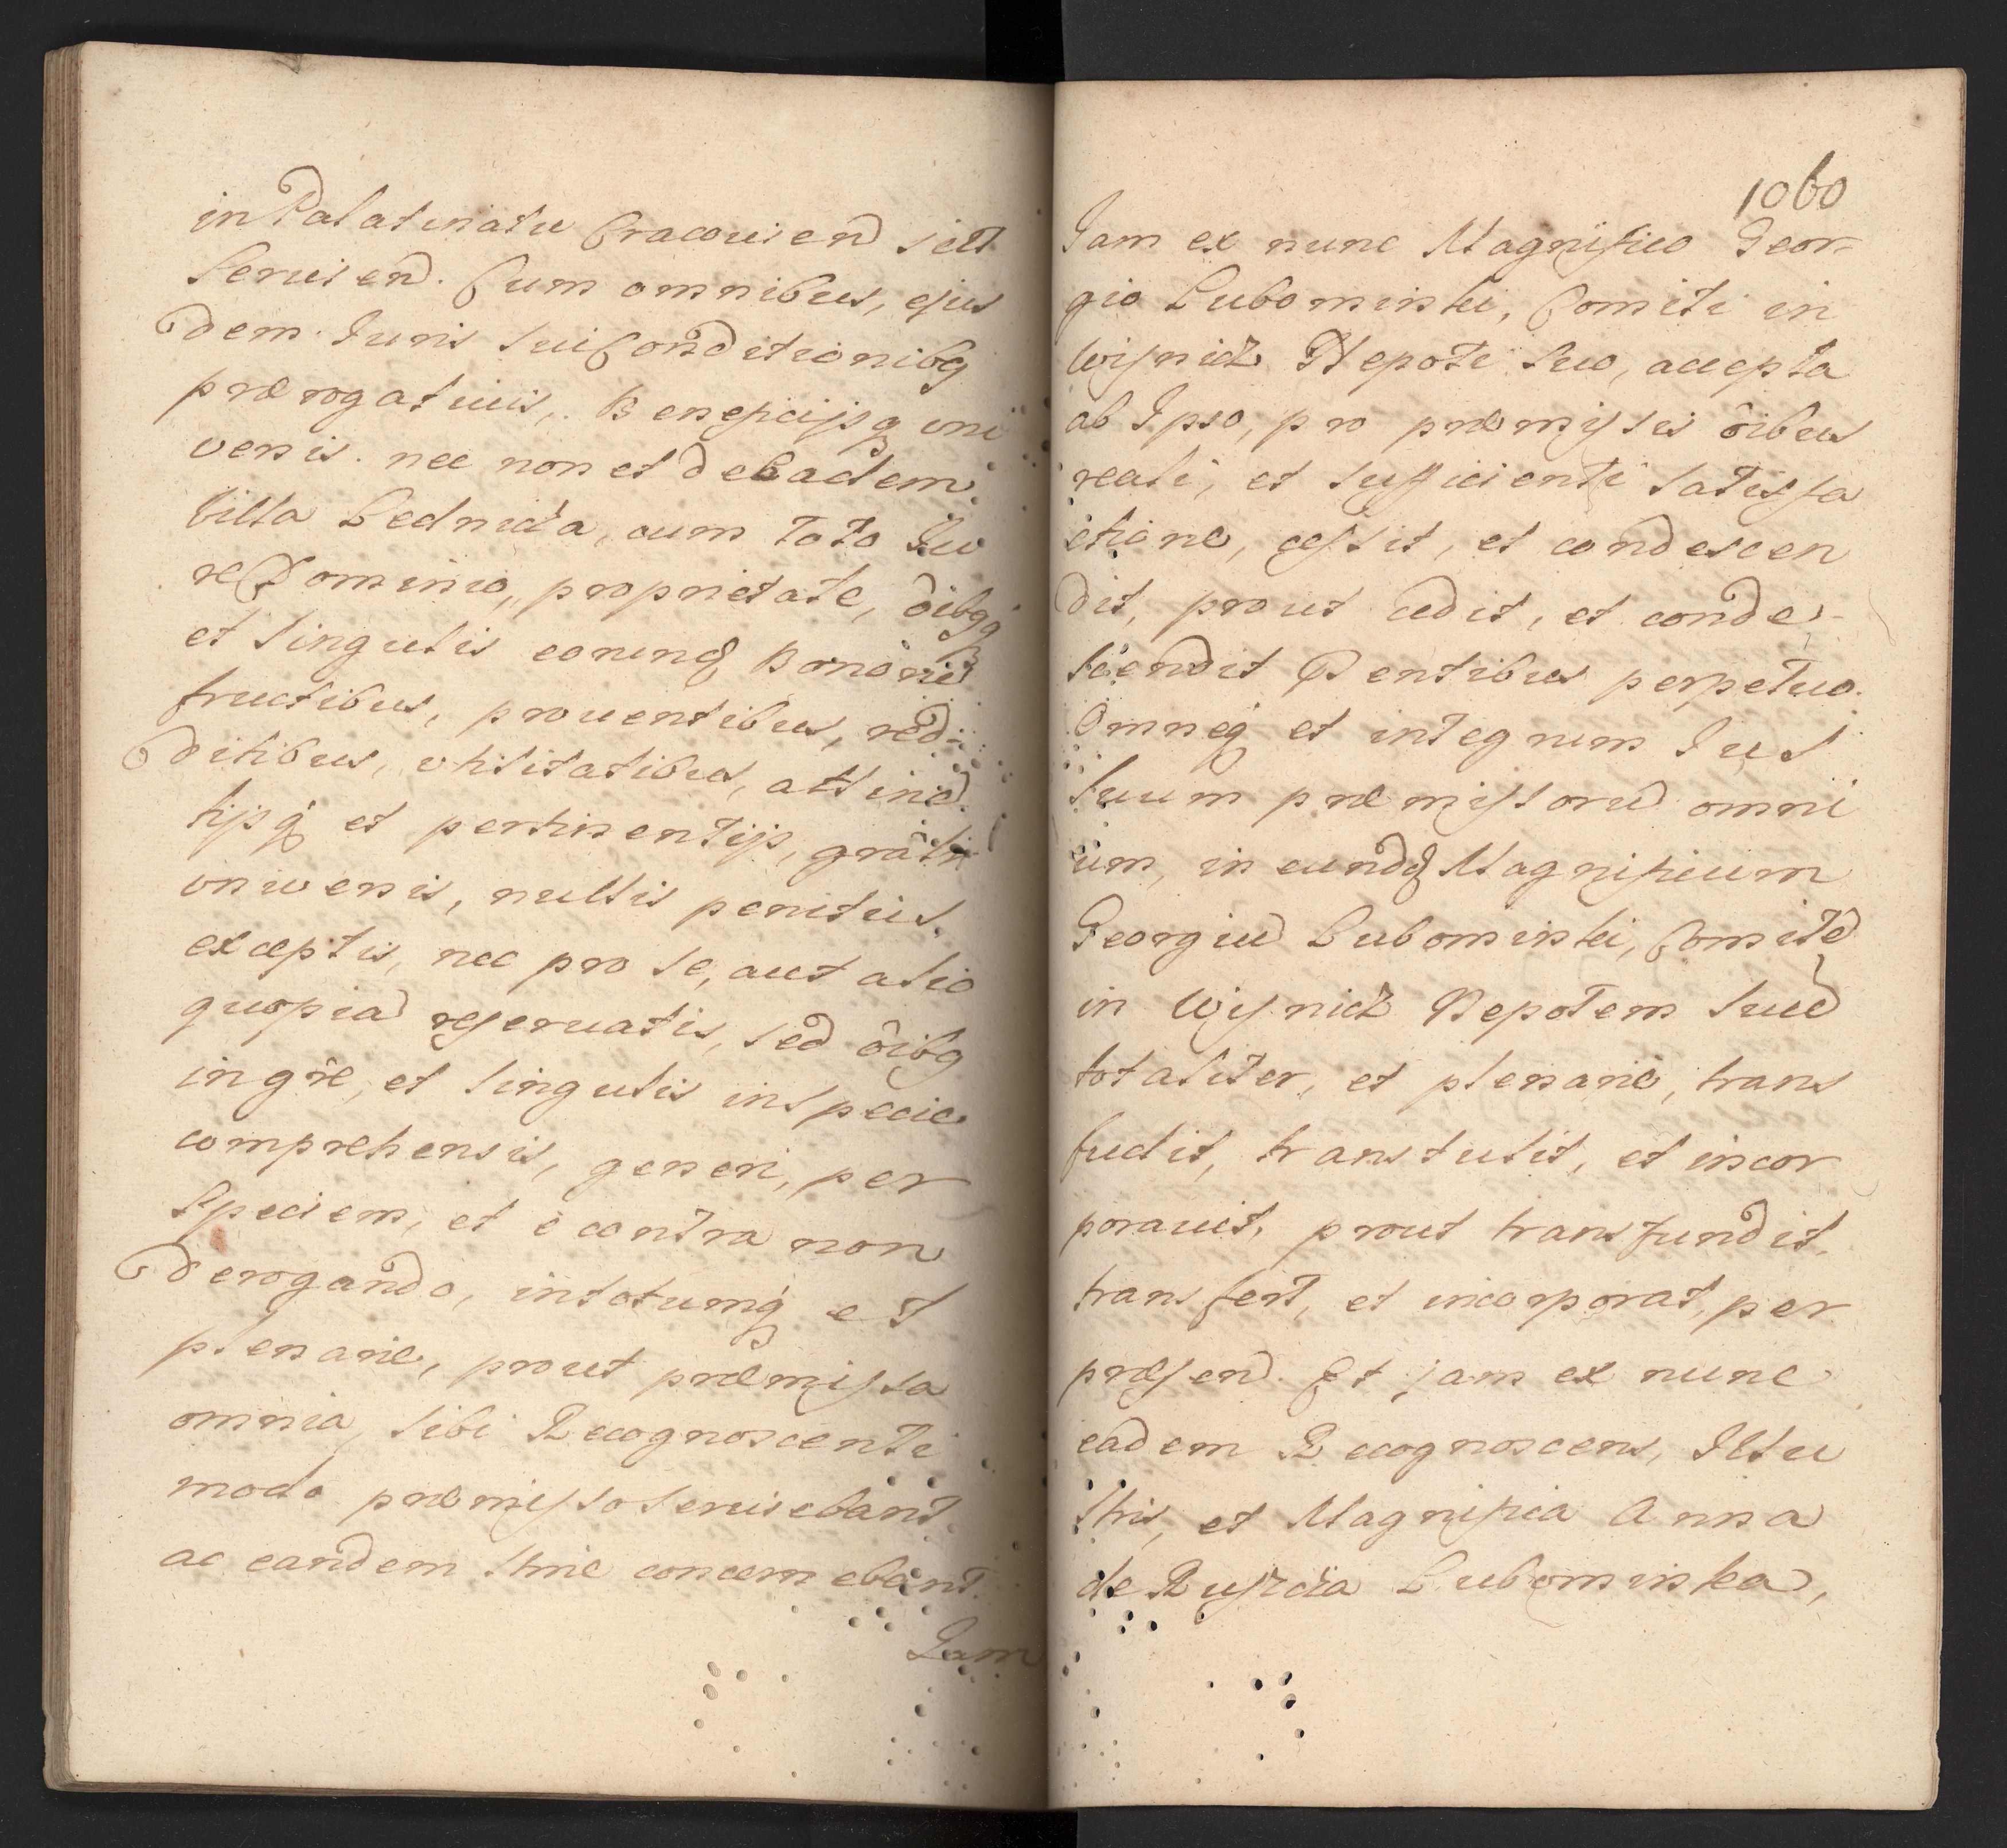 in Palatinatu Cracovien sett
Servien. Cum omnibus, ejus
dem Juris sui Conditionibq
prærogativis, Beneficijsq uni
versis. nec non et de eadem
villa Lednica, cum toto Ju
re Dominio, proprietate, oibqq
et singulis eorundq Bonoru
fructibus, proventibus, red-
ditibus, utilitatibus, attinen
tijsq et pertinentijs, gratis
universis, nullis penitus.
exceptis, nec pro se, aut alio
quopiam reservatis, sed oibq
in gre, et singulis in specie
comprehensis, generi, per
speciem, et e contra non
derogando, in totumq et
plenarie, prout præmissa
omnia sibi Recognoscenti
modo præmisso serviebant
ac eandem concernebant.
Jam
1060
Jam ex nunc Magnifico Geor-
gio Lubomirski, Comiti in
Wisnicz Nepoti suo, accepta
ab Ipso, pro præmissis oibus
reali, et sufficienti satisfa
ctione, cessit, et condescen
dit, prout cedit, et conde-
scendit Pentibus perpetuo.
Omneq et integrum Jus
suum præmissoru omni
um, in eundq Magnificum
Georgiu Lubomirski, Comite
in Wisnicz Nepotem suu
totaliter, et plenarie, trans
fudit, transtulit, et incor
poravit, prout transfundit,
transfert, et incorporat, per
præsen. Et jam ex nunc
eadem Recognoscens, Illu
stris, et Magnifica Anna
de Ruszcza Lubomirska,